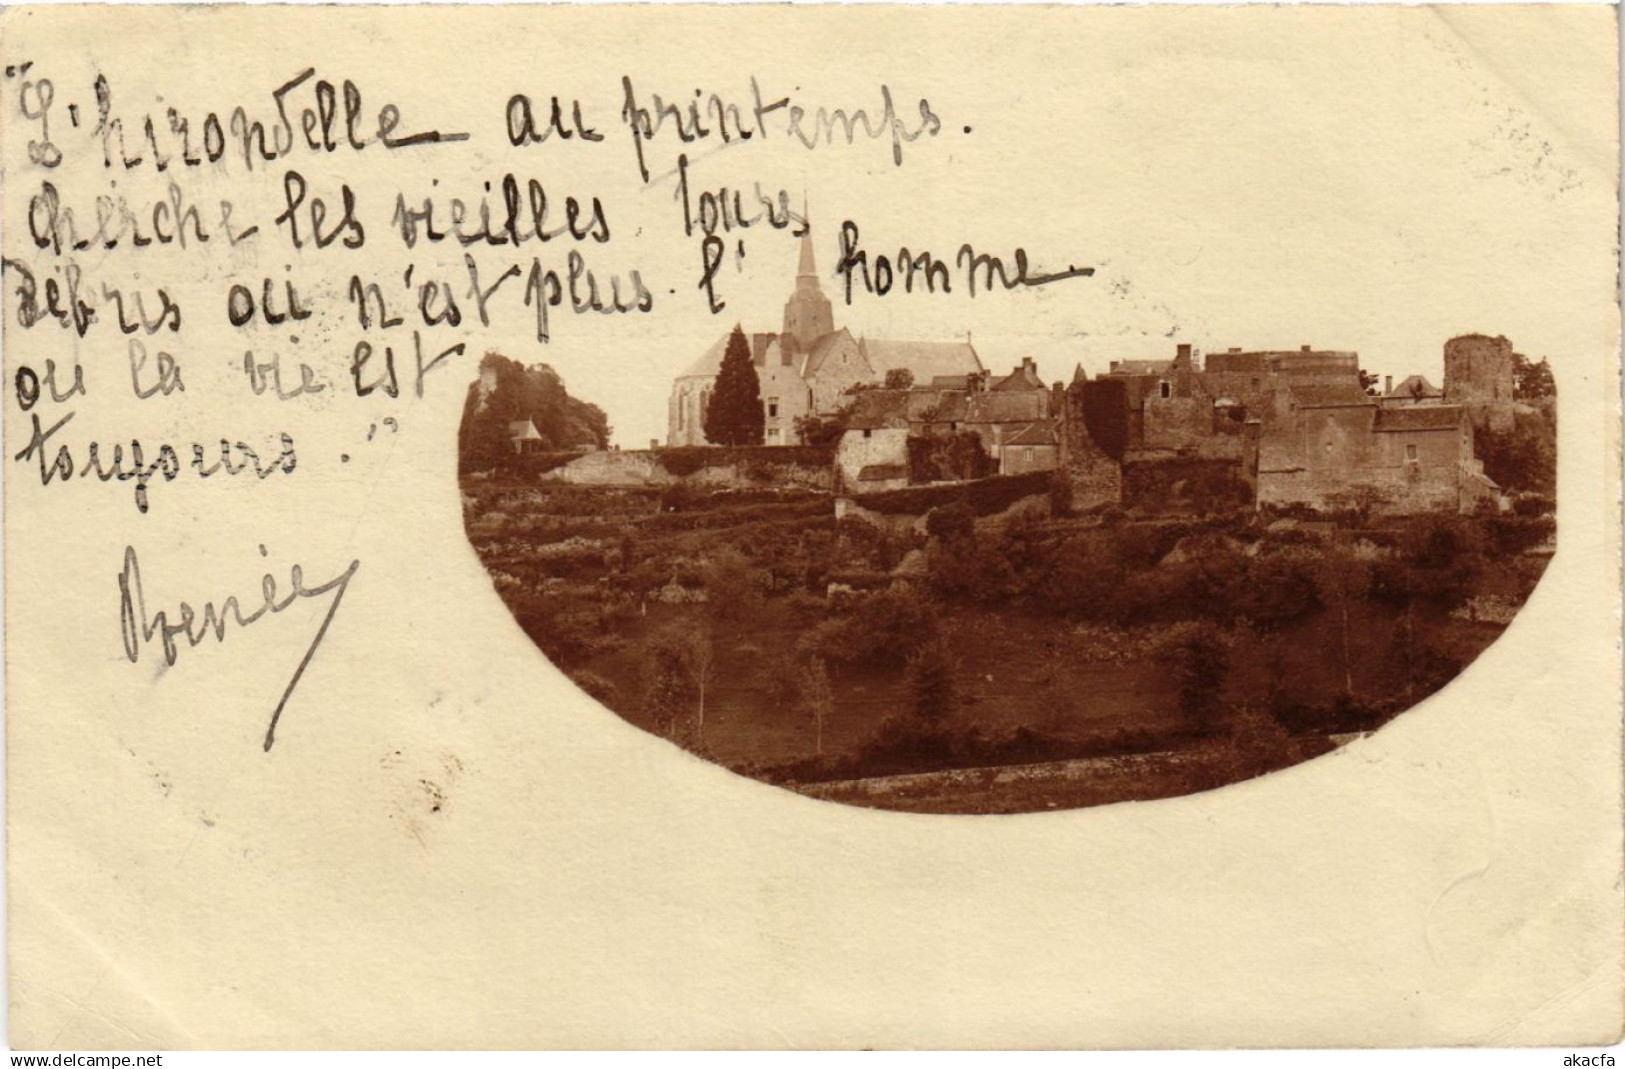 "L'hirondelle au printemps.
cherche les vieilles tours
Débris où n'est plus l'homme
où la vie est
toujours."
Renée
www.delcampe.net
akacfa